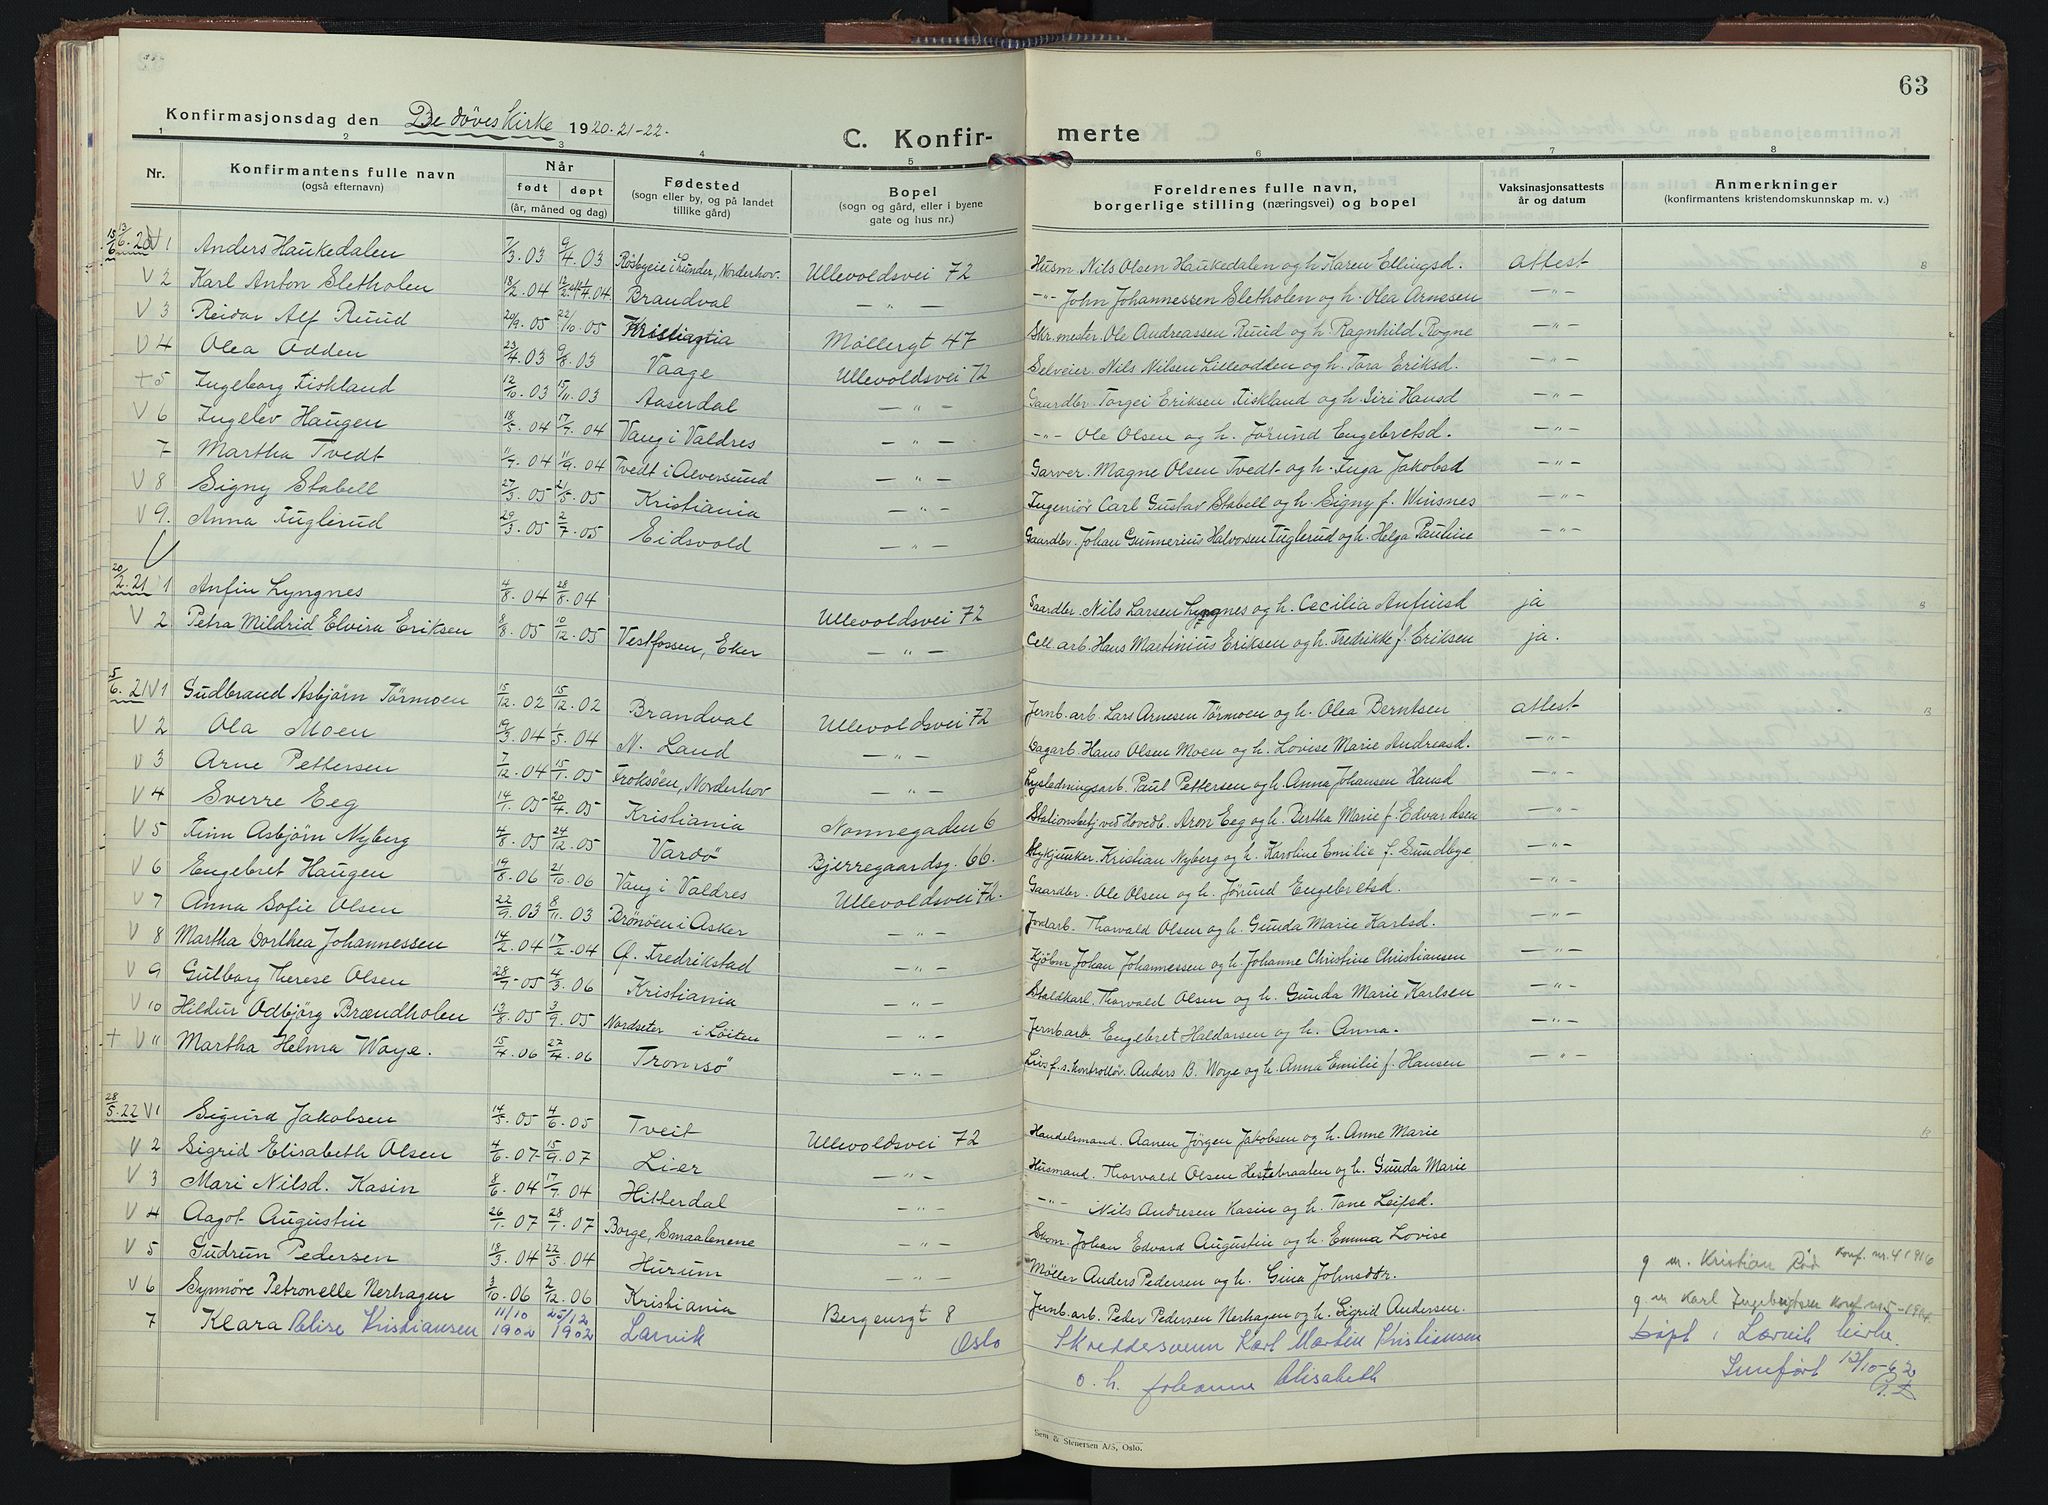 63
Konfirmasjonsdag den De døves Kirke 1920-21-22.
C. Konfir- merte
1 2 3 4 5 6 7 8
Nr. Konfirmantens fulle navn (også efternavn) Når født døpt (år, måned og dag) Fødested (sogn eller by, og på landet tillike gård) Bopel (sogn og gård, eller i byene gate og hus nr.) Foreldrenes fulle navn, borgerlige stilling (næringsvei) og bopel Vaksinasjonsattests år og datum Anmerkninger (konfirmantens kristendomskunnskap m. v.)
13/6. 20 V 1 Anders Haukedalen 7/3. 03 9/4. 03 Rösbyeie i Lunder, Norderhov. Ullevoldsvei 72 Husm. Nils Olsen Haukedalen og h. Karen Ellingsd. attest B
V 2 Karl Anton Sletholen 18/2. 04 4/4. 04 Brandval — " — —"— John Johannessen Sletholen og h. Olea Arnesen — " —
V 3 Reidar Alf Ruud 20/9. 05 22/10. 05 Kristiania Møllergt 47 Skr. mester. Ole Andreassen Ruud og h. Ragnhild Rogne — " —
V 4 Olea Odden 23/4. 03 9/8. 03 Vaage Ullevoldsvei 72 Selveier. Nils Nilsen Lilleodden og h. Tora Eriksd. — " —
+ 5 Ingeborg Fiskland 12/10. 03 15/11. 03 Aaserdal — " — Gaardbr. Torgei Eriksen Fiskland og h. Siri Hansd — " —
V 6 Ingelev Haugen 18/5. 04 17/7. 04 Vang i Valdres — " — —"— Ole Olsen og h. Jørund Engebretsd. — " —
7 Martha Tvedt 11/7. 04 11/9. 04 Tvedt i Alversund — " — Garver. Magne Olsen Tvedt og h. Inga Jakobsd — " —
V 8 Signy Stabell 27/3. 05 21/5. 05 Kristiania — " — Ingeniör Carl Gustav Stabell og h. Signy f. Winsnes — " —
V 9. Anna Fuglerud 29/3. 05 2/7. 05 Eidsvold — " — Gaardbr. Johan Gunnerius Halvorsen Fuglerud og h. Helga Pauline — " —
V
20/2. 21 1 Anfin Lyngnes 4/8. 04 28/8. 04 Ullevoldsvei 72 Gaardbr. Nils Larsen Lyngnes og h. Cecilia Anfinsd ja B
V 2 Petra Mildrid Elvira Eriksen 8/8. 05 10/12. 05 Vestfossen, Eker — " — Cell. arb. Hans Martinius Eriksen og h. Fredrikke f. Eriksen ja.
5/6. 21 V 1 Gudbrand Asbjörn Törmoen 15/12. 02 15/12. 02 Brandval Ullevoldsvei 72 Jernb. arb. Lars Arnesen Törmoen og h. Olea Berntsen attest B
V 2 Ola Moen 19/3. 04 1/5. 04 N. Land — " — Dagarb. Hans Olsen Moen og h. Lovise Marie Andreasd. — " —
V 3 Arne Pettersen 7/12. 04 15/1. 05 Froksöen, Norderhov — " — Lysledningsarb. Paul Pettersen og h. Anna Johansen Hansd — " —
V 4 Sverre Eeg 14/1. 05 20/4. 05 Kristiania Nonnegaden 6 Stationsbetj ved Hovedb. Aron Eeg og h. Bertha Marie f. Edvardsen — " —
V 5 Finn Asbjörn Nyberg 4/8. 05 24/12. 05 Vardö Bjerregaardsg. 66. Kristian Nyberg og h. Karoline Emilie f. Sundbye — " —
V 6 Engebret Haugen 19/8. 06 21/10. 06 Vang i Valdres Ullevoldsvei 72. Gaardbr. Ole Olsen og h. Jørund Engebretsd. — " —
V 7 Anna Sofie Olsen 22/9. 03 8/11. 03 Brönöen i Asker — " — Jordarb. Thorvald Olsen og h. Gunda Marie Karlsd. — " —
V 8 Martha Dorthea Johannessen 14/2. 04 17/2. 04 Gl. Fredrikstad — " — Kjöbm Johan Johannessen og h. Johanne Christine Christiansen — " —
V 9 Gulborg Therese Olsen 28/7. 05 4/3. 06 Kristiania — " — Staldkarl. Thorvald Olsen og h. Gunda Marie Karlsen — " —
V 10 Hildur Odbjörg Brændholen 13/8. 05 3/9. 05 Nordseter i Löiten — " — Jernb. arb. Engebret Haldorsen og h. Anna. — " —
+ V 11 Martha Helma Woye. 15/4. 06 27/4. 06 Tromsö — " — Livsf. s. kontrollör. Anders B. Woye og h. Anna Emilie f. Hansen — " —
28/5. 22 V 1 Sigurd Jakobsen 14/5. 05 4/6. 05 Tveit Ullevoldsvei 72 Handelsmand. Aanen Jörgen Jakobsen og h. Anne Marie B
V 2 Sigrid Elisabeth Olsen 4/6. 07 15/9. 07 Lier — " — Husmand. Thorvald Olsen Hestebraaten og h. Gunda Marie
V 3 Mari Nilsd. Kasin 8/6. 04 17/7. 04 Hitterdal — " — —"— Nils Andresen Kasin og h. Tone Leifsd.
V 4 Aagot Augustin 26/1. 07 28/1. 07 Borge, Smaalenene — " — Skom. Johan Edvard Augustin og h. Emma Lovise
V 5 Gudrun Pedersen 18/3. 04 22/5. 04 Hurum — " — Møller Anders Pedersen og h. Gina Johnsdtr. g m. Kristian Röd Konf. nr. 4 1916
V 6 Synnöve Petronelle Nerhagen 3/10. 06 2/12. 06 Kristiania — " — Jernb. arb. Peder Pedersen Nerhagen og h. Sigrid Andersen. g. m Karl Ingebrigtsen Konf. nr 5 - 1914.
7 Klara Elise Kristiansen 11/10 1902 25/12 1902 Larvik Bergensgt 8 Oslo Skreddersvenn Karl Martin Kristiansen döpt i Larvik kirke
o. h. Johanne Elisabeth Innført 12/10-62
Sem & Stenersen A/S, Oslo.